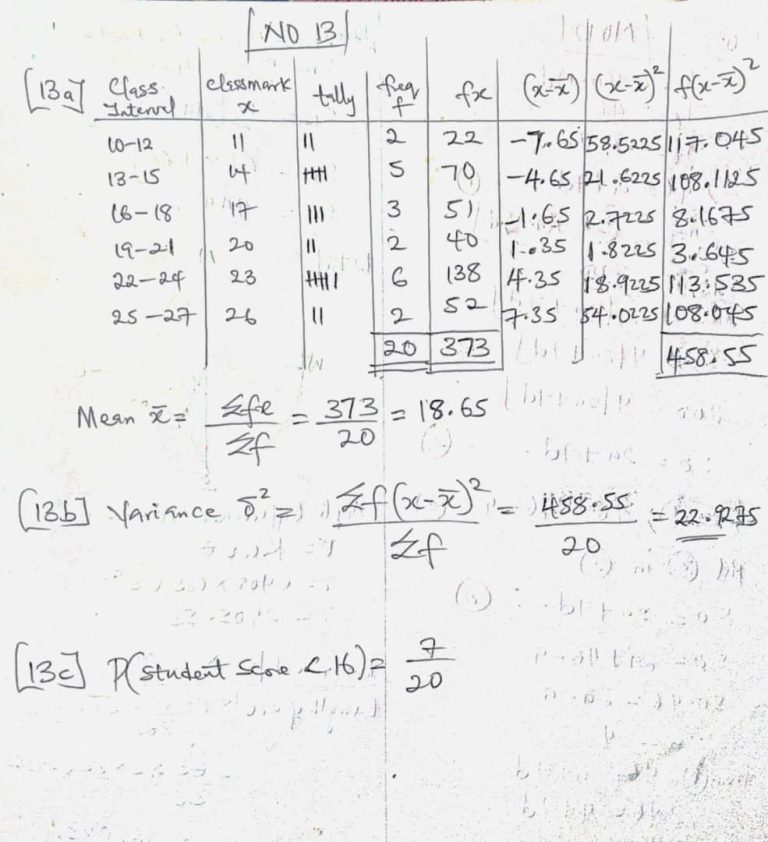 NO 13
[13a] Class Interval classmark x tally freq f fx (x-x̄) (x-x̄)² f(x-x̄)²
10-12 11 || 2 22 -7.65 58.5225 117.045
13-15 14 𝍸 5 70 -4.65 21.6225 108.1125
16-18 17 ||| 3 51 -1.65 2.7225 8.1675
19-21 20 || 2 40 1.35 1.8225 3.645
22-24 23 𝍸| 6 138 4.35 18.9225 113.535
25-27 26 || 2 52 7.35 54.0225 108.045
20 373 458.55
Mean x̄ = Σfx/Σf = 373/20 = 18.65
[13b] Variance δ² = Σf(x-x̄)²/Σf = 458.55/20 = 22.9275
[13c] P(student score < 16) = 7/20